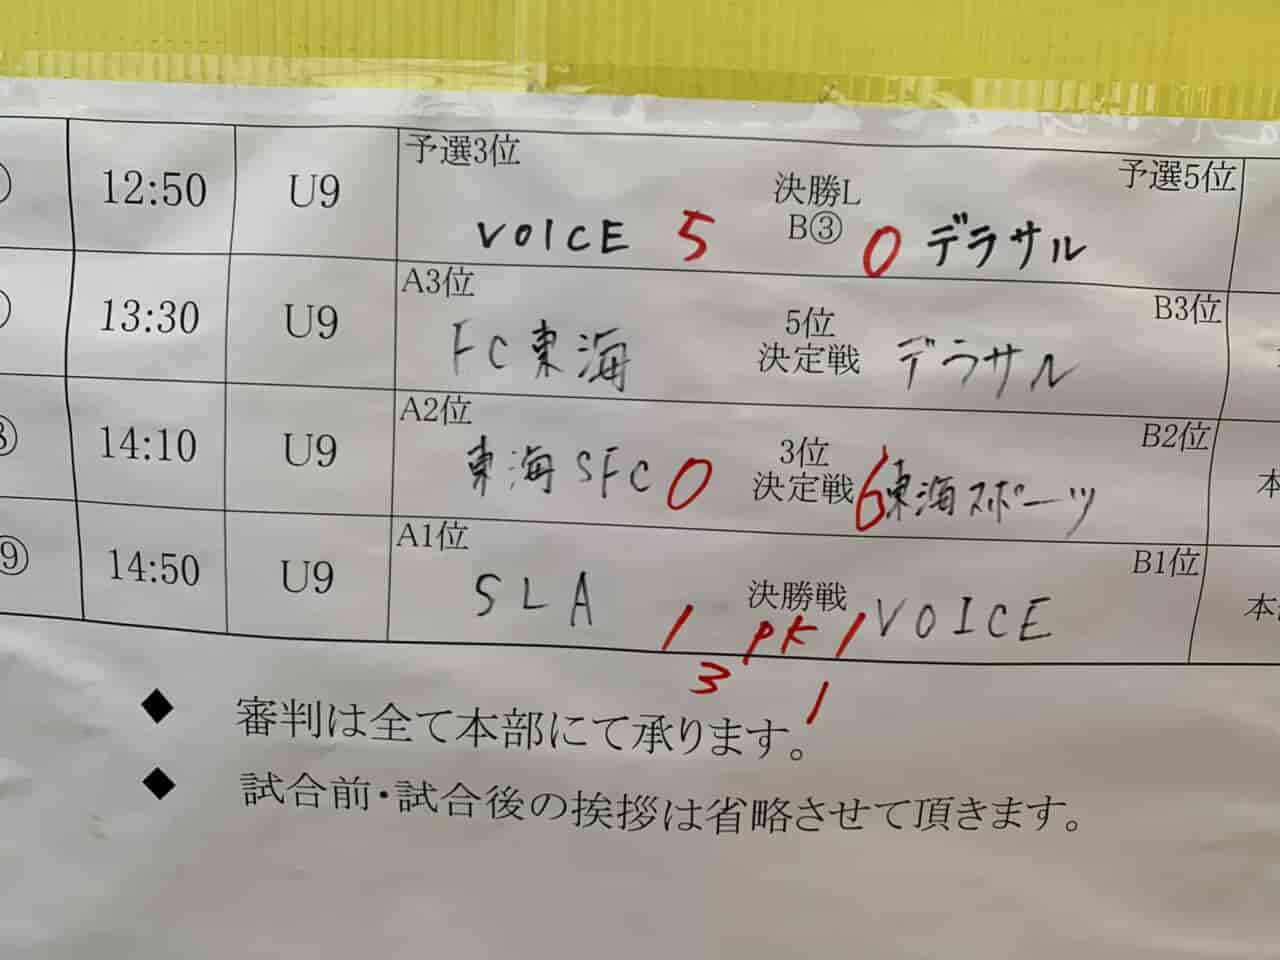 12:50 U9 予選3位 VOICE 5 決勝L B③ 0 デラサル 予選5位
13:30 U9 A3位 FC東海 5位 決定戦 デラサル B3位
⑧ 14:10 U9 A2位 東海SFC 0 3位 決定戦 6 東海スポーツ B2位 本
⑨ 14:50 U9 A1位 SLA 1 決勝戦 PK 1 VOICE B1位 本
3 1
◆ 審判は全て本部にて承ります。
◆ 試合前・試合後の挨拶は省略させて頂きます。